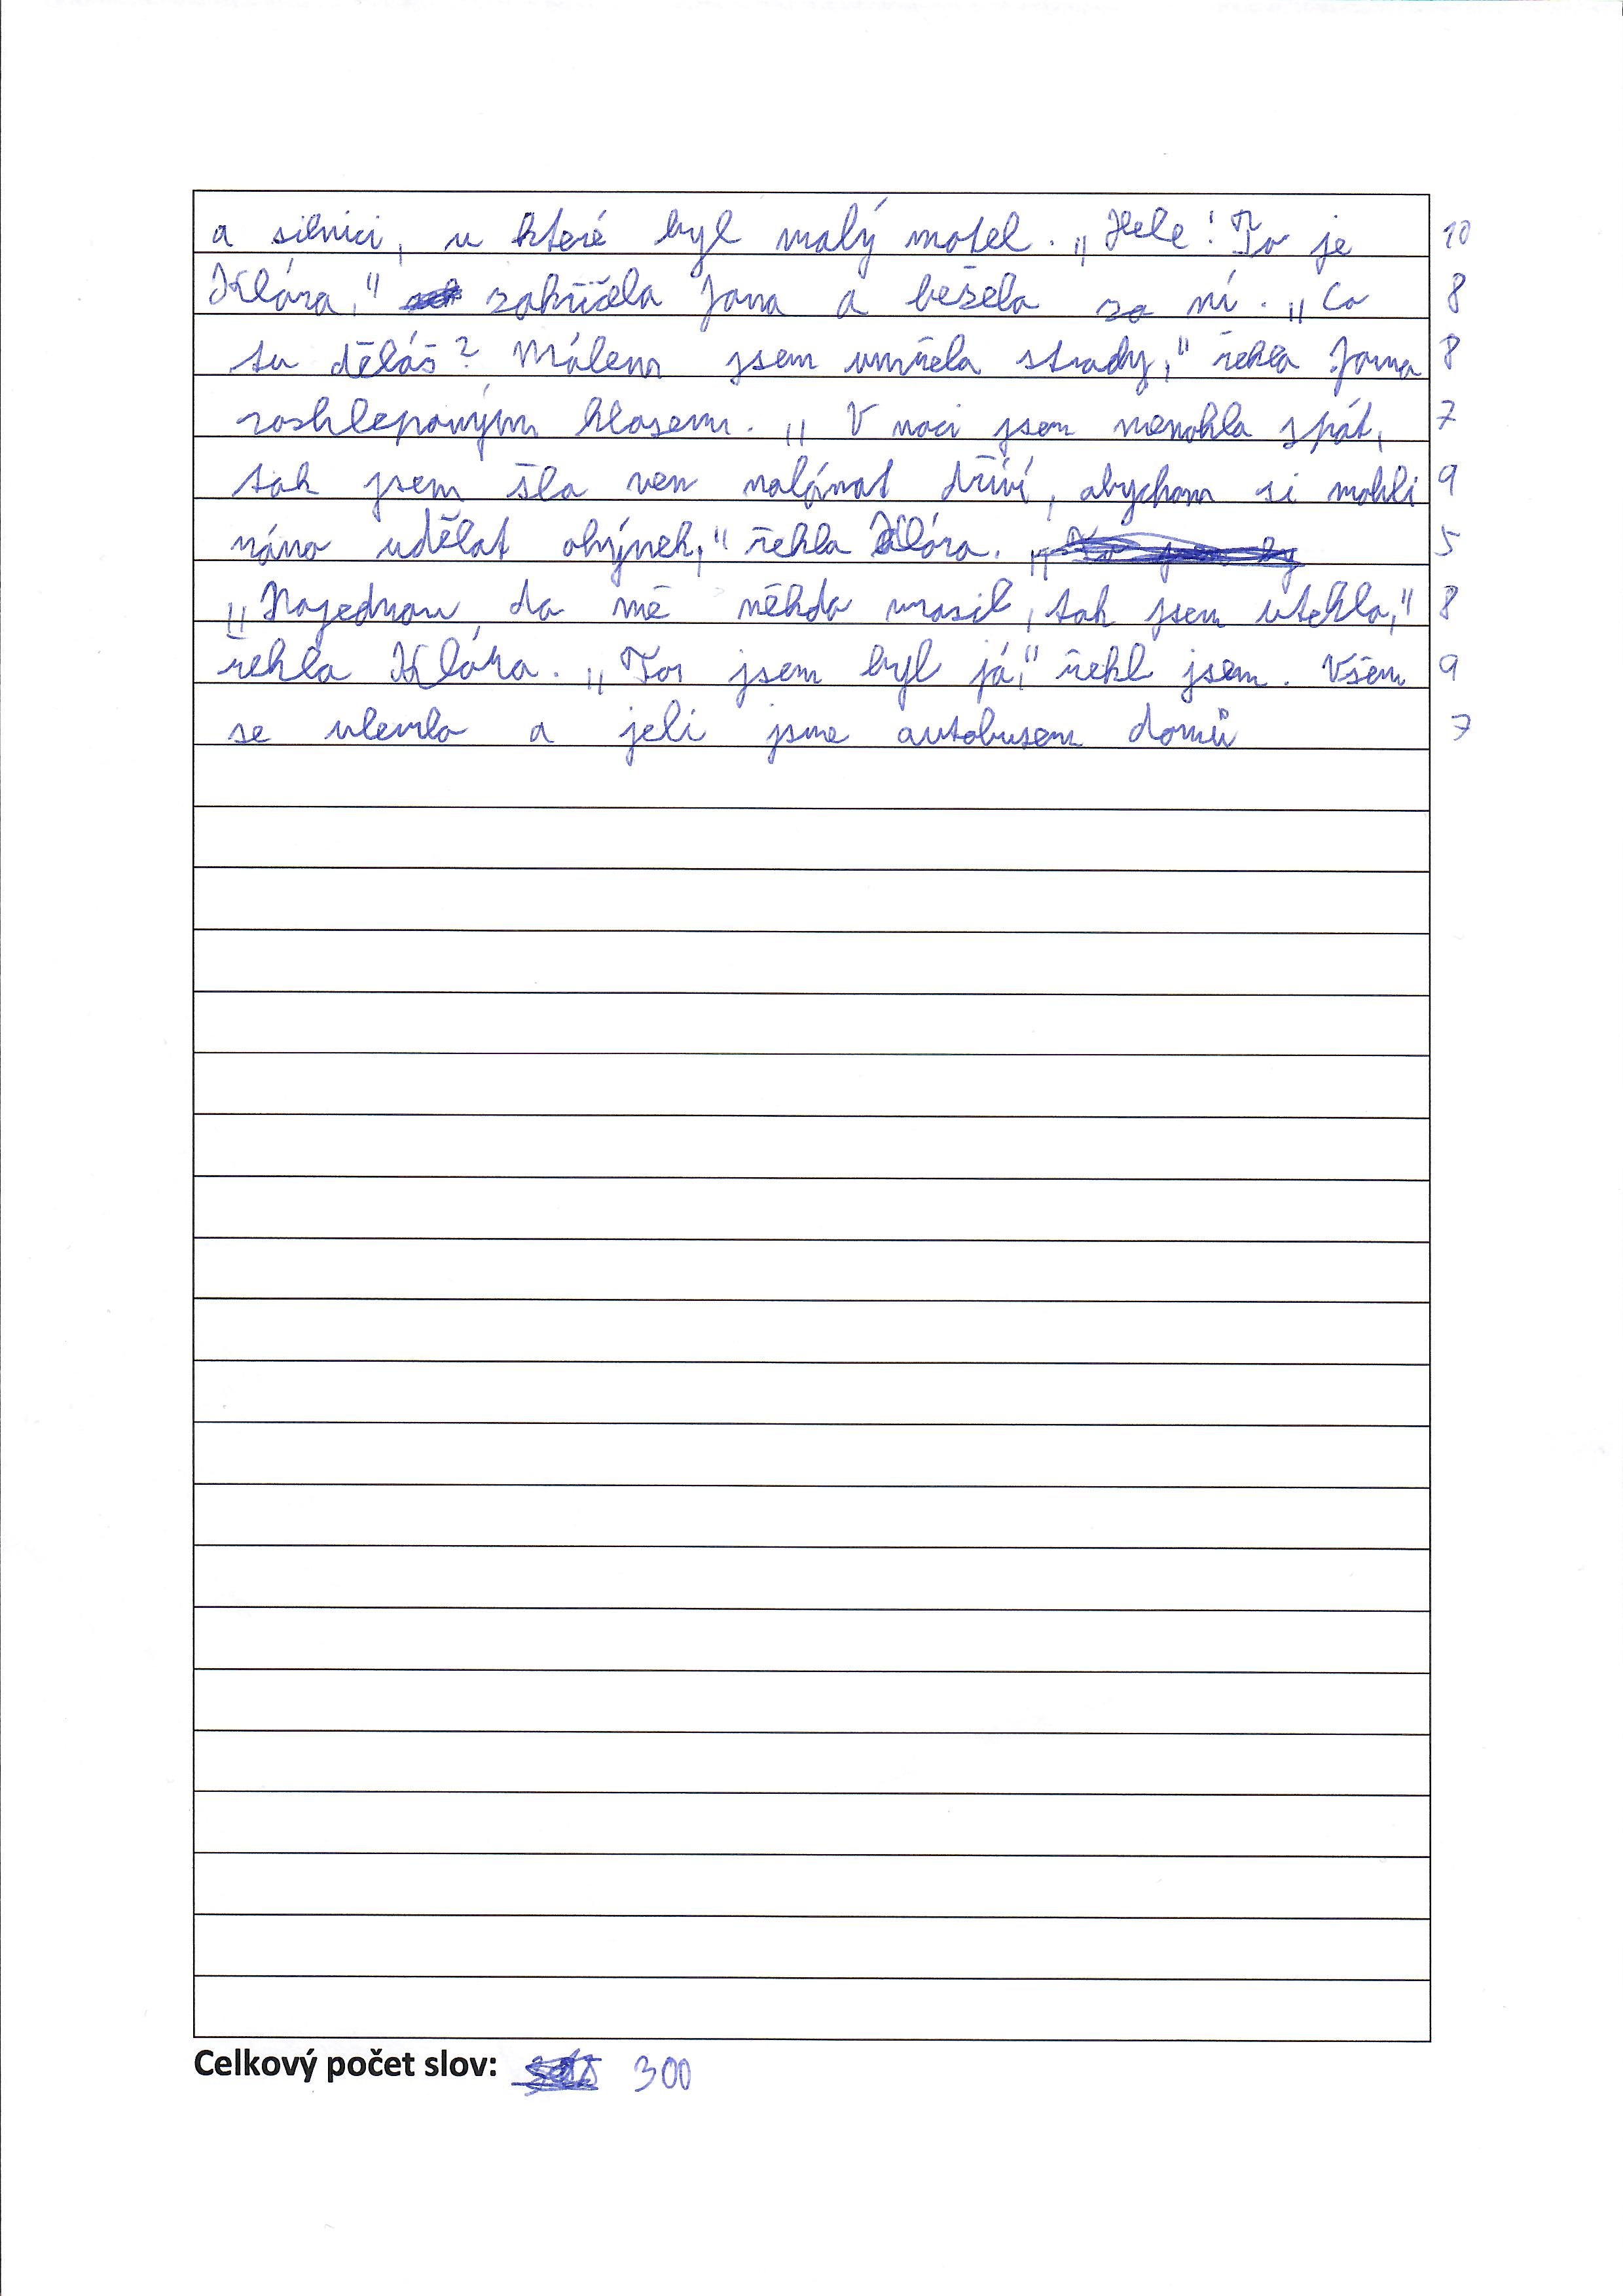 a silnici, u které byl malý motel. „Hele! To je 10
Klára," zakřičela Jana a běžela za ní. „Co 8
tu děláš? Málem jsem umřela strachy," řekla Jana 8
rozklepaným hlasem. „V noci jsem nemohla spát, 7
tak jsem šla ven nalámat dříví, abychom si mohli 9
ráno udělat ohýnek," řekla Klára. „ 5
„Najednou do mě někdo vrazil, tak jsem utekla," 8
řekla Klára. „To jsem byl já," řekl jsem. Všem 9
se ulevilo a jeli jsme autobusem domů 7
Celkový počet slov: 300